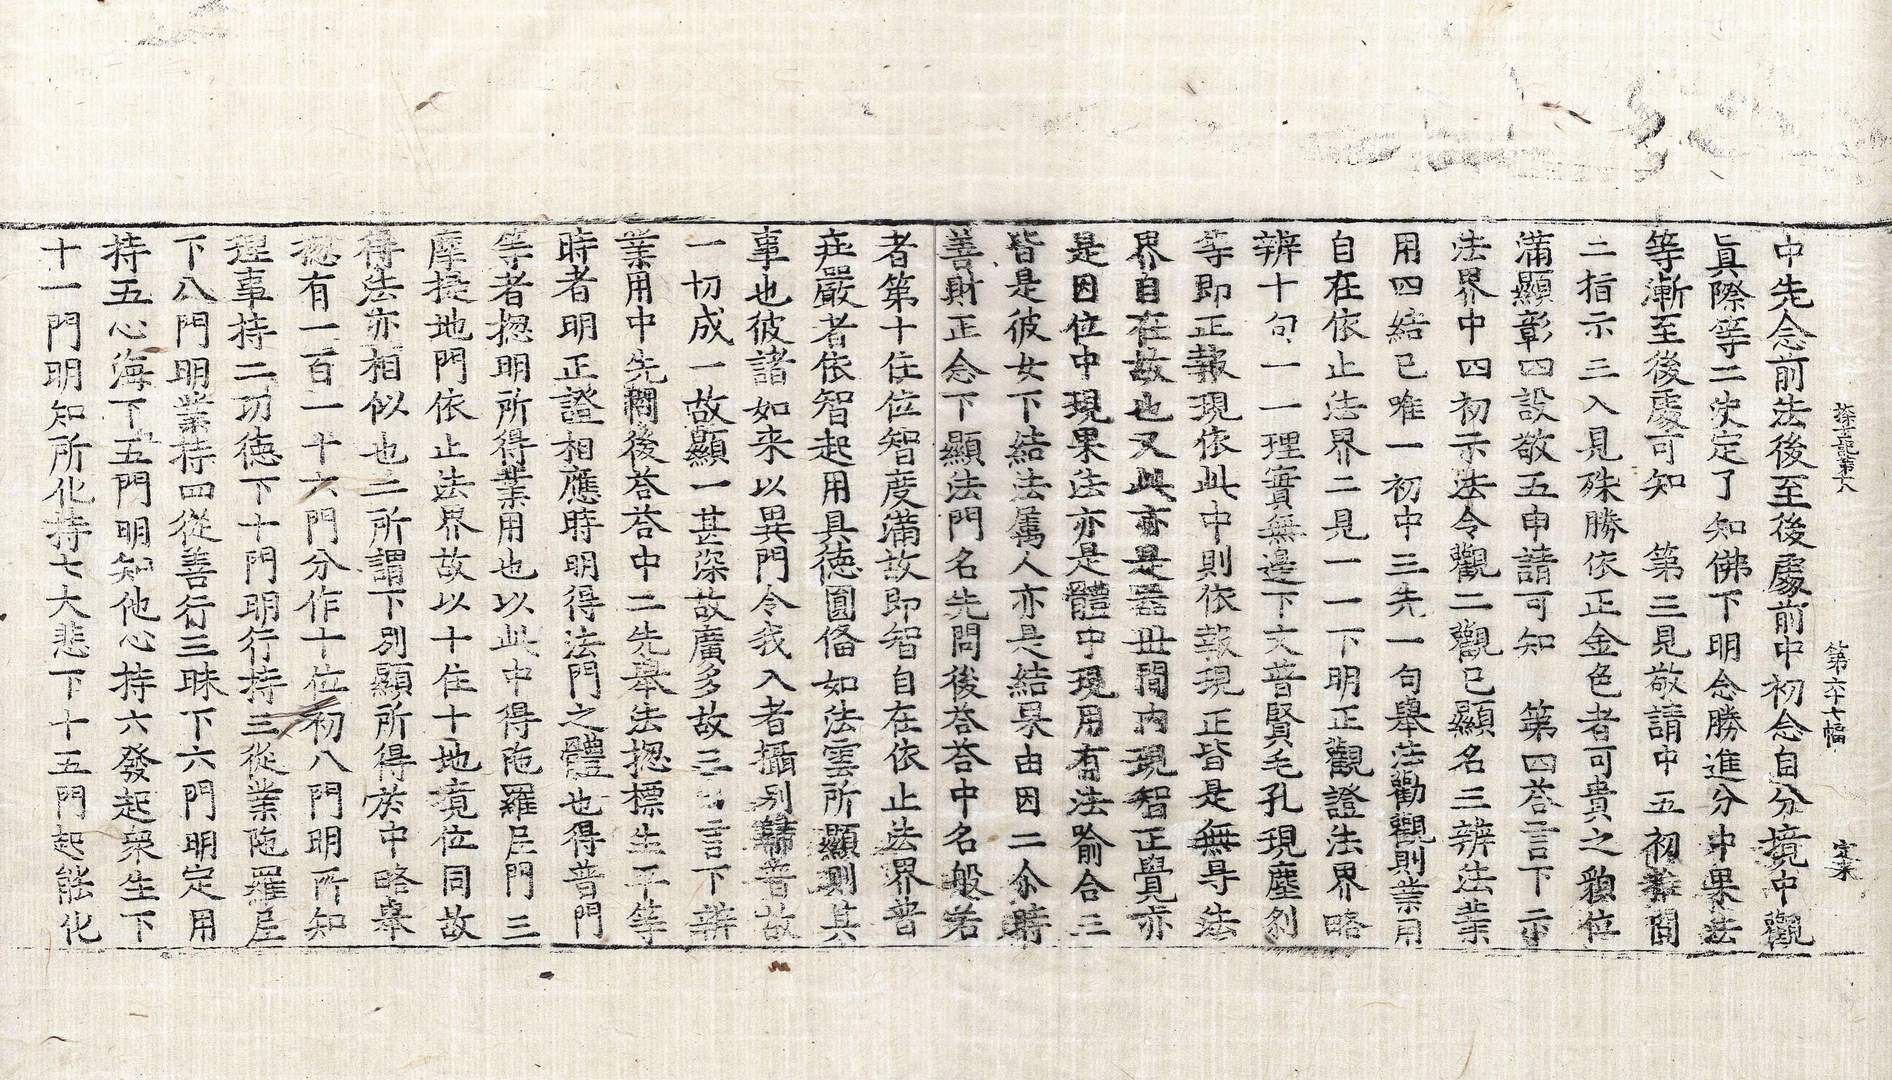 探玄記第十八 第六十七幅 定夫
中先念前法後至後處前中初念自分境中觀
眞際等二决定了知佛下明念勝進分中果法
等漸至後處可知 第三見敬請中五初推問
二指示三入見殊勝依正金色者可貴之貌位
滿顯彰四設敬五申請可知 第四荅言下示
法界中四初示法令觀二觀已顯名三辨法業
用四結已唯一初中三先一句舉法勸觀則業用
自在依止法界二見一一下明正觀證法界略
辨十句一一理實無邊下文普賢毛孔現塵刹
等即正報現依此中則依報現正皆是無㝵法
界自在故也又此亦是器丗間内現智正覺亦
是因位中現果法亦是體中現用有法喻合三
皆是彼女下結法屬人亦是結果由因二尒時
善財正念下顯法門名先問後荅荅中名般若
者第十住位智度滿故即智自在依止法界普
莊嚴者依智起用具德圓俻如法雲所顯測其
事也彼諸如来以異門令我入者攝别歸普故
一切成一故顯一甚深故廣多故三荅言下辨
業用中先問後荅荅中二先舉法揔標生平等
時者明正證相應時明得法門之體也得普門
等者揔明所得業用也以此中得陁羅尼門三
摩提地門依止法界故以十住十地境位同故
得法亦相似也二所謂下别顯所得於中略舉
揔有一百一十六門分作十位初八門明所知
理事持二功德下十門明行持三從業陁羅尼
下八門明業持四從善行三昧下六門明定用
持五心海下五門明知他心持六發起衆生下
十一門明知所化持七大悲下十五門起能化